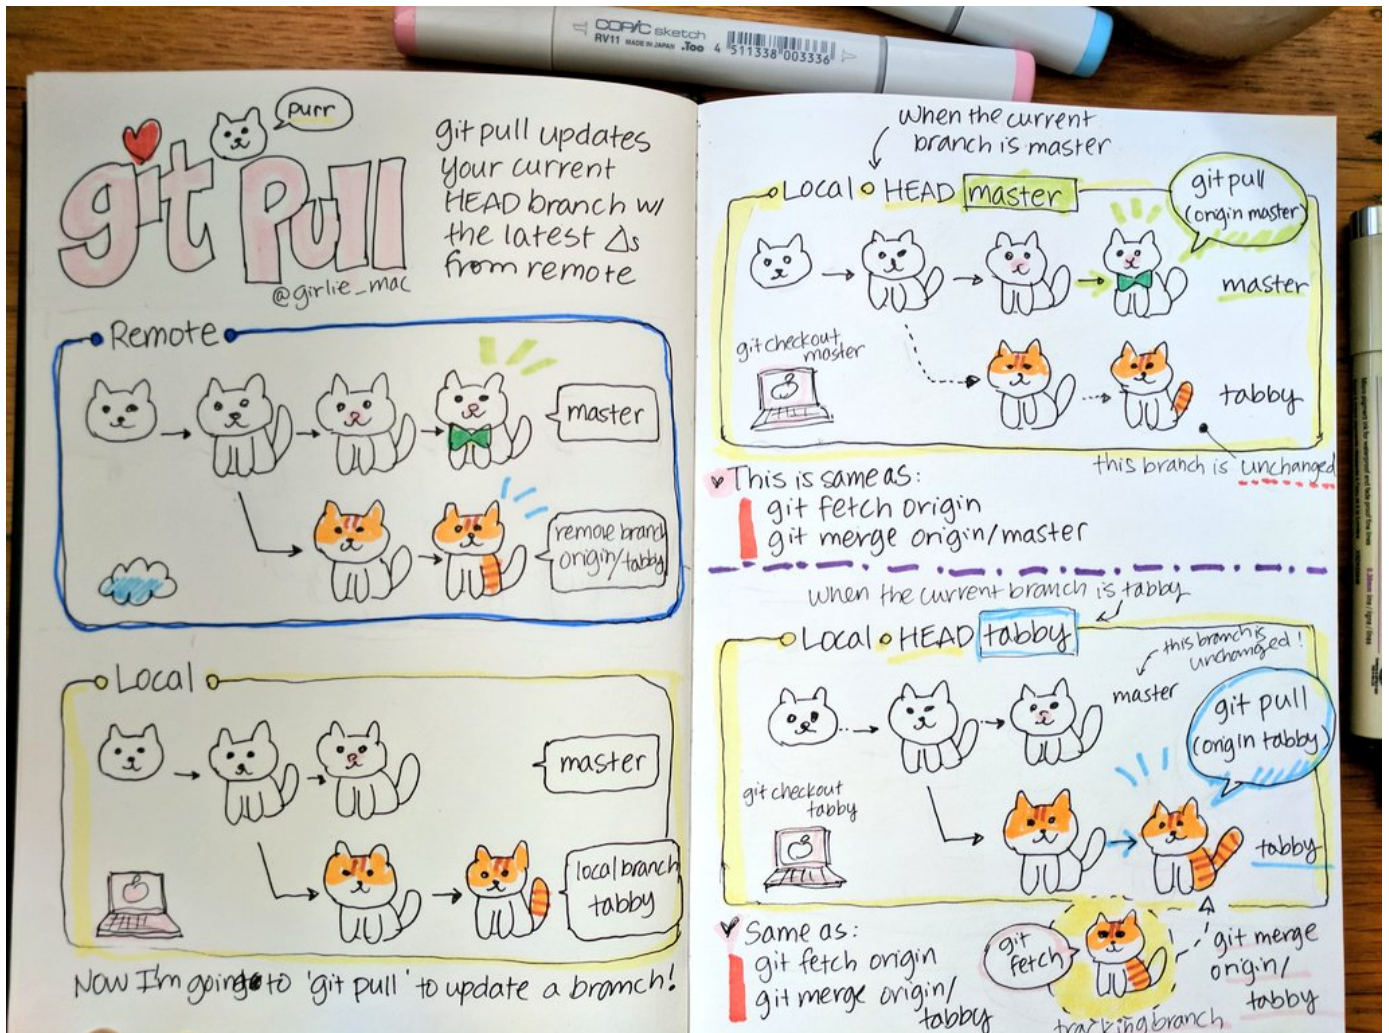 COPIC sketch
RV11 MADE IN JAPAN .Too 4 511338 003336
purr
git Pull
@girlie_mac
git pull updates
your current
HEAD branch w/
the latest Δs
from remote
Remote
master
remove branc
origin/tabby
Local
master
local branch
tabby
Now I'm going to 'git pull' to update a branch!
when the current
branch is master
Local HEAD master
git pull
(origin master)
master
git checkout
master
tabby
this branch is unchanged
This is same as:
git fetch origin
git merge origin/master
when the current branch is tabby
Local HEAD tabby
this branch is
unchanged!
master
git pull
(origin tabby)
git checkout
tabby
tabby
Same as:
git fetch origin
git merge origin/
tabby
git
fetch
git merge
origin/
tabby
tracking branch